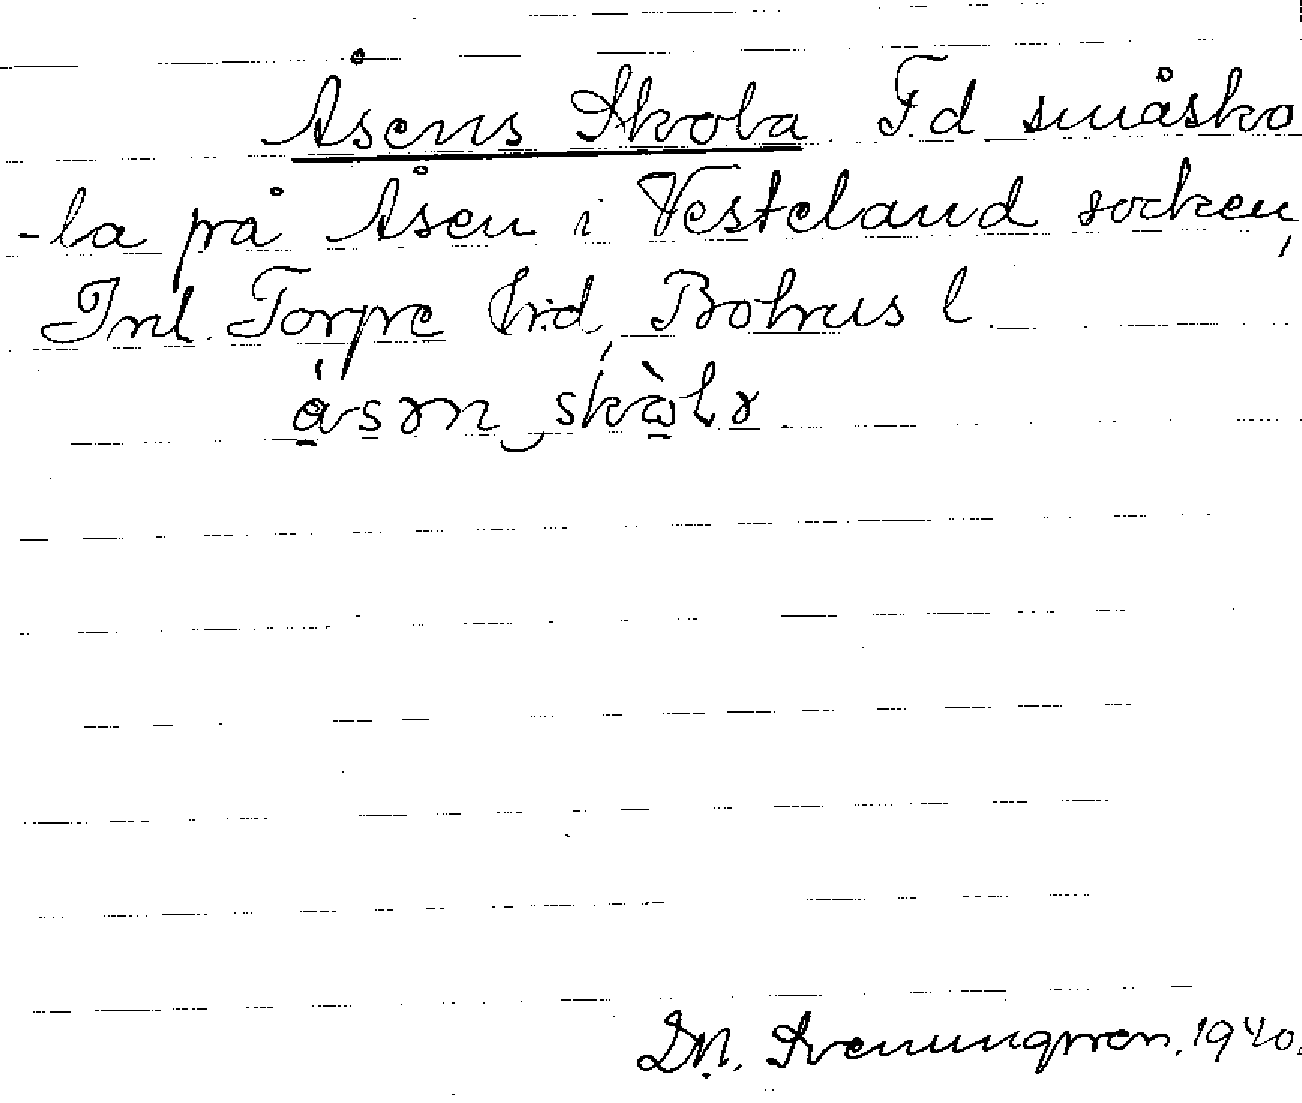 Åsens Skola. F.d småsko
-la på Åsen i Vesteland socken,
Inl. Torpe hrd, Bohus l
Dn. Svenungsson. 1940.